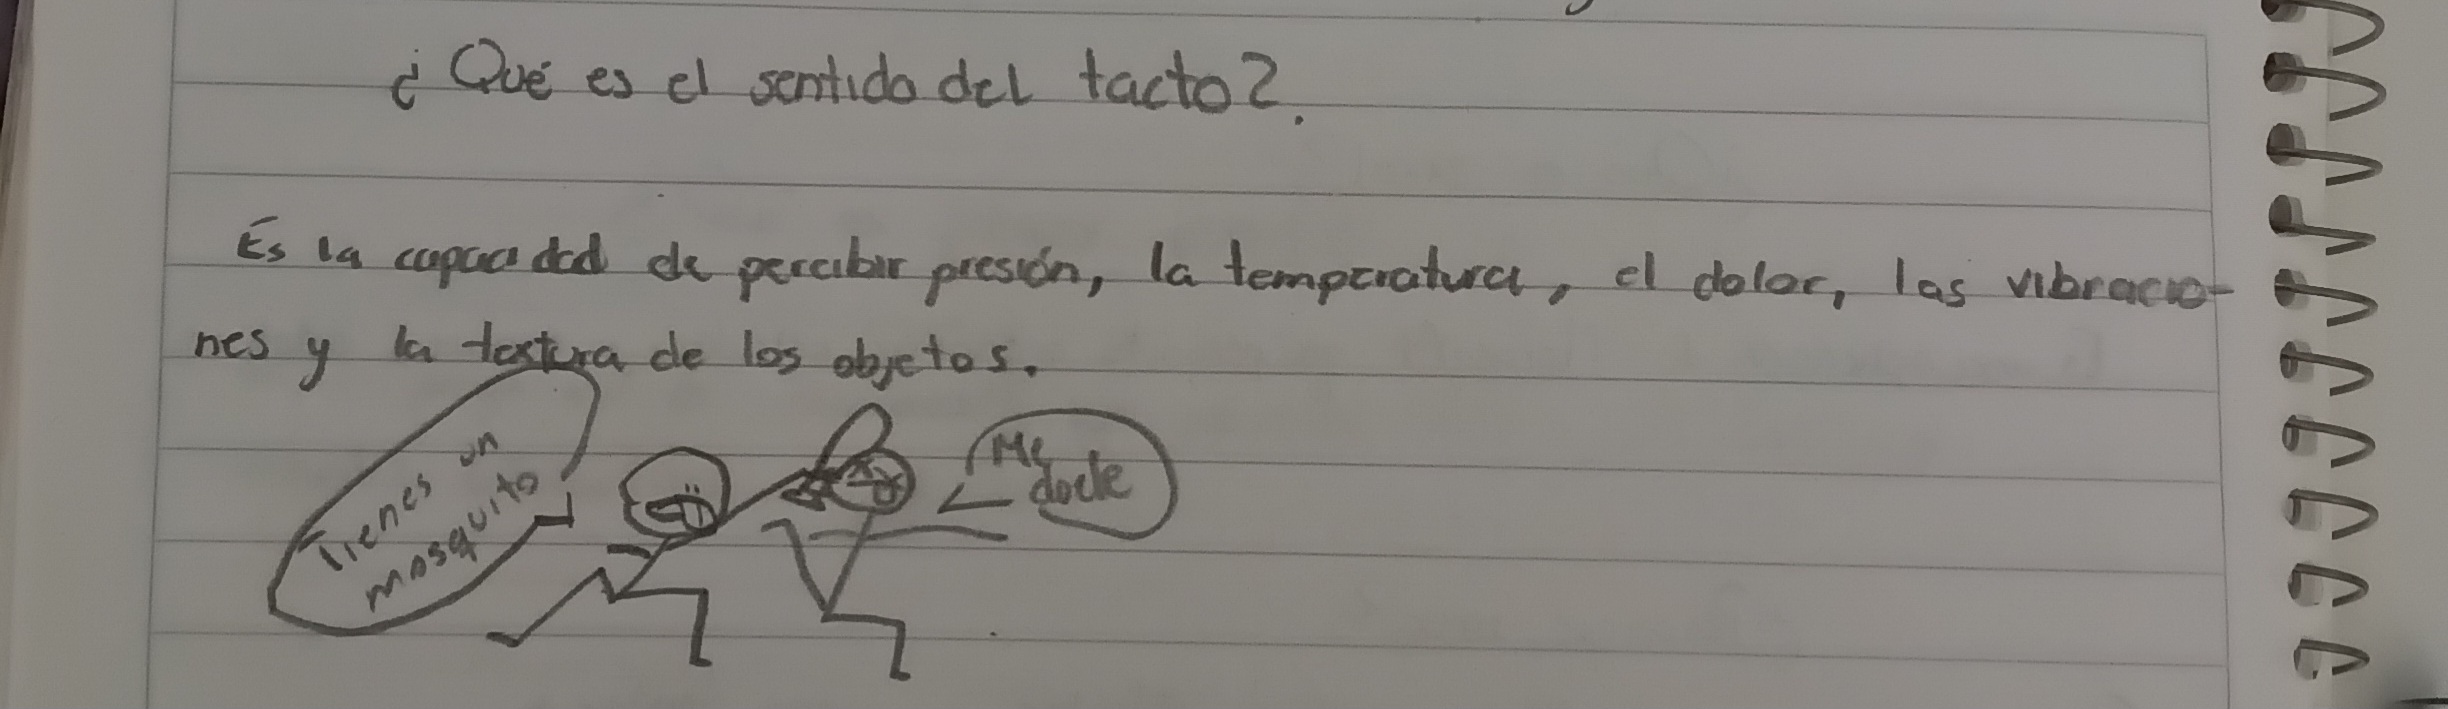 ¿Qué es el sentido del tacto?.
Es la capacidad de percibir presión, la temperatura, el dolor, las vibracio-
nes y la textura de los objetos.
Tienes un
mosquito
Me
duele